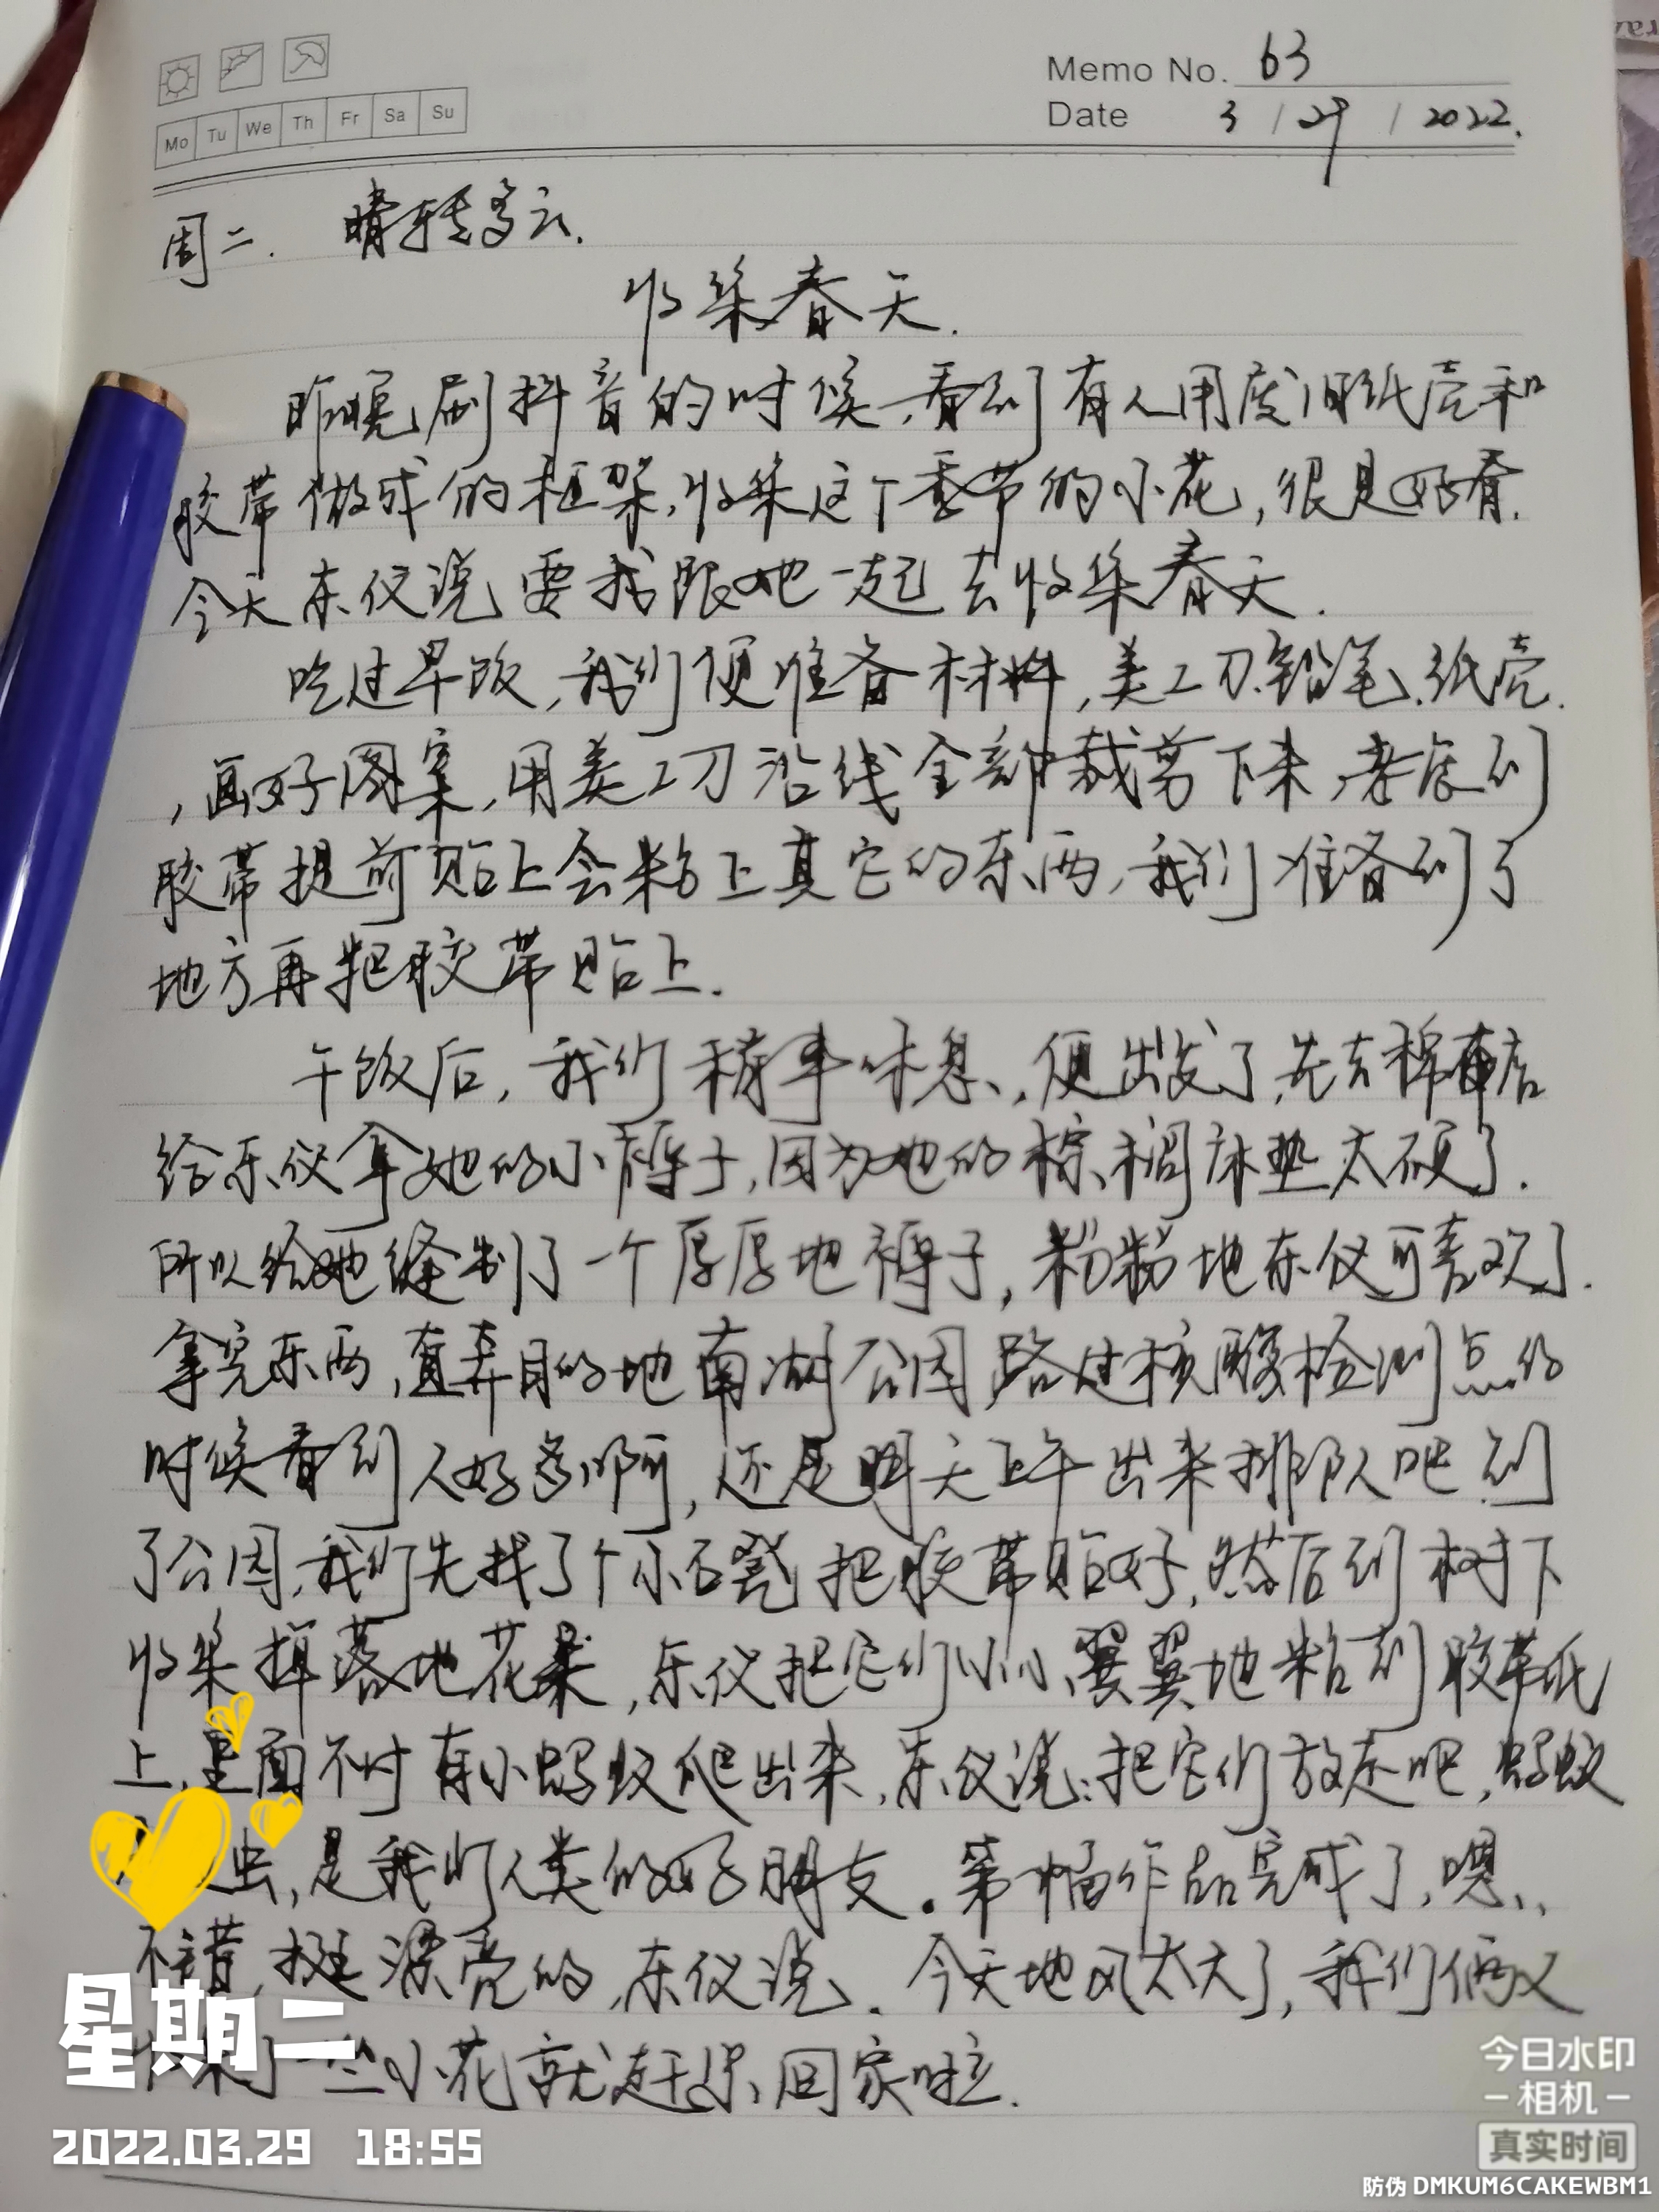 Memo No. 63
Mo Tu We Th Fr Sa Su
Date 3 / 29 / 2022.
周二. 晴转多云.
收集春天.
昨晚刷抖音的时候,看到有人用废旧纸壳和
胶带做成的框架,收集这个季节的小花,很是好看.
今天东仪说要我跟她一起去收集春天.
吃过早饭,我们便准备材料,美工刀.铅笔.纸壳.
,画好图案,用美工刀沿线全部裁剪下来,考虑到
胶带提前贴上会粘上其它的东西,我们准备到了
地方再把胶带贴上.
午饭后,我们稍事休息,便出发了,先去棉布店
给东仪拿她的小褥子,因为她的棕榈床垫太硬了.
所以给她缝制了一个厚厚地褥子,粉粉地东仪可喜欢了.
拿完东西,直奔目的地南湖公园,路过核酸检测点的
时候看到人好多啊,还是明天上午出来排队吧.到
了公园,我们先找了个小石凳把胶带贴好,然后到树下
收集掉落地花朵,东仪把它们小小翼翼地粘到胶带纸
上,里面不时有小蚂蚁爬出来,东仪说:把它们放走吧,蚂蚁
虫,是我们人类的好朋友.第一幅作品完成了,嗯,
不错,挺漂亮的,东仪说.今天地风太大了,我们俩又
了一些小花就赶紧回家啦.
星期二
2022.03.29 18:55
今日水印
相机
真实时间
防伪 DMKUM6CAKEWBM1